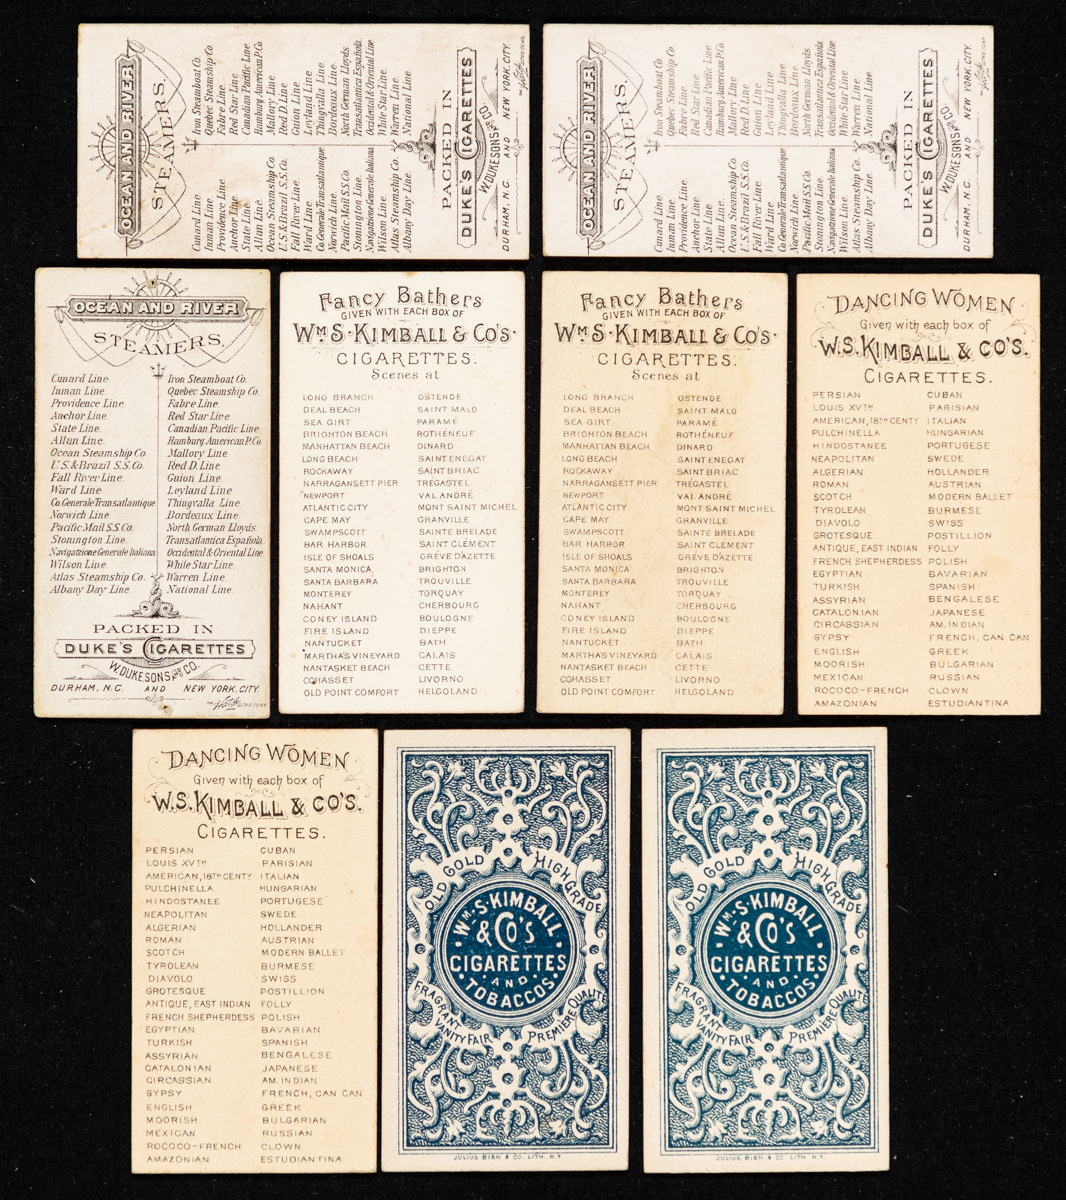 OCEAN AND RIVER
STEAMERS.
Cunard Line.
Inman Line.
Providence Line.
Anchor Line.
State Line.
Allan Line.
Ocean Steamship Co.
U.S. & Brazil S.S. Co.
Fall River Line.
Ward Line.
Co. Generale Transatlantique
Norwich Line.
Pacific Mail S.S. Co.
Stonington Line.
Navigatzione Generale Italiana
Wilson Line.
Atlas Steamship Co.
Albany Day Line.
Iron Steamboat Co.
Quebec Steamship Co.
Fabre Line.
Red Star Line.
Canadian Pacific Line.
Hamburg American P. Co.
Mallory Line.
Red D. Line
Guion Line.
Leyland Line.
Thingvalla Line.
Bordeaux Line.
North German Lloyds.
Transatlantica Española.
Occidental & Oriental Line.
White Star Line.
Warren Line.
National Line.
PACKED IN
DUKE'S CIGARETTES
W. DUKE SONS AND CO.
DURHAM, N.C. AND NEW YORK, CITY.
OCEAN AND RIVER
STEAMERS.
Cunard Line.
Inman Line.
Providence Line.
Anchor Line.
State Line.
Allan Line.
Ocean Steamship Co.
U.S. & Brazil S.S. Co.
Fall River Line.
Ward Line.
Co. Generale Transatlantique
Norwich Line.
Pacific Mail S.S. Co.
Stonington Line.
Navigatzione Generale Italiana
Wilson Line.
Atlas Steamship Co.
Albany Day Line.
Iron Steamboat Co.
Quebec Steamship Co.
Fabre Line.
Red Star Line.
Canadian Pacific Line.
Hamburg American P. Co.
Mallory Line.
Red D. Line
Guion Line.
Leyland Line.
Thingvalla Line.
Bordeaux Line.
North German Lloyds.
Transatlantica Española.
Occidental & Oriental Line.
White Star Line.
Warren Line.
National Line.
PACKED IN
DUKE'S CIGARETTES
W. DUKE SONS AND CO.
DURHAM, N.C. AND NEW YORK, CITY.
OCEAN AND RIVER
STEAMERS.
Cunard Line.
Inman Line.
Providence Line.
Anchor Line.
State Line.
Allan Line.
Ocean Steamship Co.
U.S. & Brazil S.S. Co.
Fall River Line.
Ward Line.
Co. Generale Transatlantique
Norwich Line.
Pacific Mail S.S. Co.
Stonington Line.
Navigatzione Generale Italiana
Wilson Line.
Atlas Steamship Co.
Albany Day Line.
Iron Steamboat Co.
Quebec Steamship Co.
Fabre Line.
Red Star Line.
Canadian Pacific Line.
Hamburg American P. Co.
Mallory Line.
Red D. Line
Guion Line.
Leyland Line.
Thingvalla Line.
Bordeaux Line.
North German Lloyds.
Transatlantica Española.
Occidental & Oriental Line.
White Star Line.
Warren Line.
National Line.
PACKED IN
DUKE'S CIGARETTES
W. DUKE SONS AND CO.
DURHAM, N.C. AND NEW YORK, CITY.
Fancy Bathers
GIVEN WITH EACH BOX OF
Wm S. KIMBALL & Co's.
CIGARETTES.
Scenes at
LONG BRANCH
DEAL BEACH
SEA GIRT
BRIGHTON BEACH
MANHATTAN BEACH
LONG BEACH
ROCKAWAY
NARRAGANSETT PIER
NEWPORT
ATLANTIC CITY
CAPE MAY
SWAMPSCOTT
BAR HARBOR
ISLE OF SHOALS
SANTA MONICA
SANTA BARBARA
MONTEREY
NAHANT
CONEY ISLAND
FIRE ISLAND
NANTUCKET
MARTHA'S VINEYARD
NANTASKET BEACH
COHASSET
OLD POINT COMFORT
OSTENDE
SAINT MALO
PARAMÉ
ROTHÉNEUF
DINARD
SAINT ENEGAT
SAINT BRIAC
TRÉGASTEL
VAL ANDRÉ
MONT SAINT MICHEL
GRANVILLE
SAINTE BRELADE
SAINT CLÉMENT
GRÉVE D'AZETTE
BRIGHTON
TROUVILLE
TORQUAY
CHERBOURG
BOULOGNE
DIEPPE
BATH
CALAIS
CETTE
LIVORNO
HELGOLAND
Fancy Bathers
GIVEN WITH EACH BOX OF
Wm S. KIMBALL & Co's.
CIGARETTES.
Scenes at
LONG BRANCH
DEAL BEACH
SEA GIRT
BRIGHTON BEACH
MANHATTAN BEACH
LONG BEACH
ROCKAWAY
NARRAGANSETT PIER
NEWPORT
ATLANTIC CITY
CAPE MAY
SWAMPSCOTT
BAR HARBOR
ISLE OF SHOALS
SANTA MONICA
SANTA BARBARA
MONTEREY
NAHANT
CONEY ISLAND
FIRE ISLAND
NANTUCKET
MARTHA'S VINEYARD
NANTASKET BEACH
COHASSET
OLD POINT COMFORT
OSTENDE
SAINT MALO
PARAMÉ
ROTHÉNEUF
DINARD
SAINT ENEGAT
SAINT BRIAC
TRÉGASTEL
VAL ANDRÉ
MONT SAINT MICHEL
GRANVILLE
SAINTE BRELADE
SAINT CLÉMENT
GRÉVE D'AZETTE
BRIGHTON
TROUVILLE
TORQUAY
CHERBOURG
BOULOGNE
DIEPPE
BATH
CALAIS
CETTE
LIVORNO
HELGOLAND
DANCING WOMEN
Given with each box of
W.S. KIMBALL & CO'S.
CIGARETTES.
PERSIAN
LOUIS XVTH
AMERICAN, 18TH CENTY
PULCHINELLA
HINDOSTANEE
NEAPOLITAN
ALGERIAN
ROMAN
SCOTCH
TYROLEAN
DIAVOLO
GROTESQUE
ANTIQUE, EAST INDIAN
FRENCH SHEPHERDESS
EGYPTIAN
TURKISH
ASSYRIAN
CATALONIAN
CIRCASSIAN
GYPSY
ENGLISH
MOORISH
MEXICAN
ROCOCO-FRENCH
AMAZONIAN
CUBAN
PARISIAN
ITALIAN
HUNGARIAN
PORTUGESE
SWEDE
HOLLANDER
AUSTRIAN
MODERN BALLET
BURMESE
SWISS
POSTILLION
FOLLY
POLISH
BAVARIAN
SPANISH
BENGALESE
JAPANESE
AM. INDIAN
FRENCH, CAN CAN
GREEK
BULGARIAN
RUSSIAN
CLOWN
ESTUDIANTINA
DANCING WOMEN
Given with each box of
W.S. KIMBALL & CO'S.
CIGARETTES.
PERSIAN
LOUIS XVTH
AMERICAN, 18TH CENTY
PULCHINELLA
HINDOSTANEE
NEAPOLITAN
ALGERIAN
ROMAN
SCOTCH
TYROLEAN
DIAVOLO
GROTESQUE
ANTIQUE, EAST INDIAN
FRENCH SHEPHERDESS
EGYPTIAN
TURKISH
ASSYRIAN
CATALONIAN
CIRCASSIAN
GYPSY
ENGLISH
MOORISH
MEXICAN
ROCOCO-FRENCH
AMAZONIAN
CUBAN
PARISIAN
ITALIAN
HUNGARIAN
PORTUGESE
SWEDE
HOLLANDER
AUSTRIAN
MODERN BALLET
BURMESE
SWISS
POSTILLION
FOLLY
POLISH
BAVARIAN
SPANISH
BENGALESE
JAPANESE
AM. INDIAN
FRENCH, CAN CAN
GREEK
BULGARIAN
RUSSIAN
CLOWN
ESTUDIANTINA
OLD GOLD HIGH GRADE
Wm. S. KIMBALL
& Co's
CIGARETTES
AND
TOBACCOS
FRAGRANT VANITY FAIR PREMIERE QUALITE
JULIUS BIEN & CO. LITH. N.Y.
OLD GOLD HIGH GRADE
Wm. S. KIMBALL
& Co's
CIGARETTES
AND
TOBACCOS
FRAGRANT VANITY FAIR PREMIERE QUALITE
JULIUS BIEN & CO. LITH. N.Y.